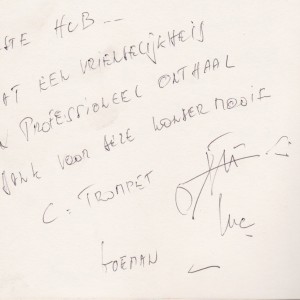 STE HUB...
AT EEN VRIENDELIJKHEID
PROFESSIONEEL ONTHAAL
DANK VOOR DEZE WONDERMOOIE
C. TROMPET
Luc